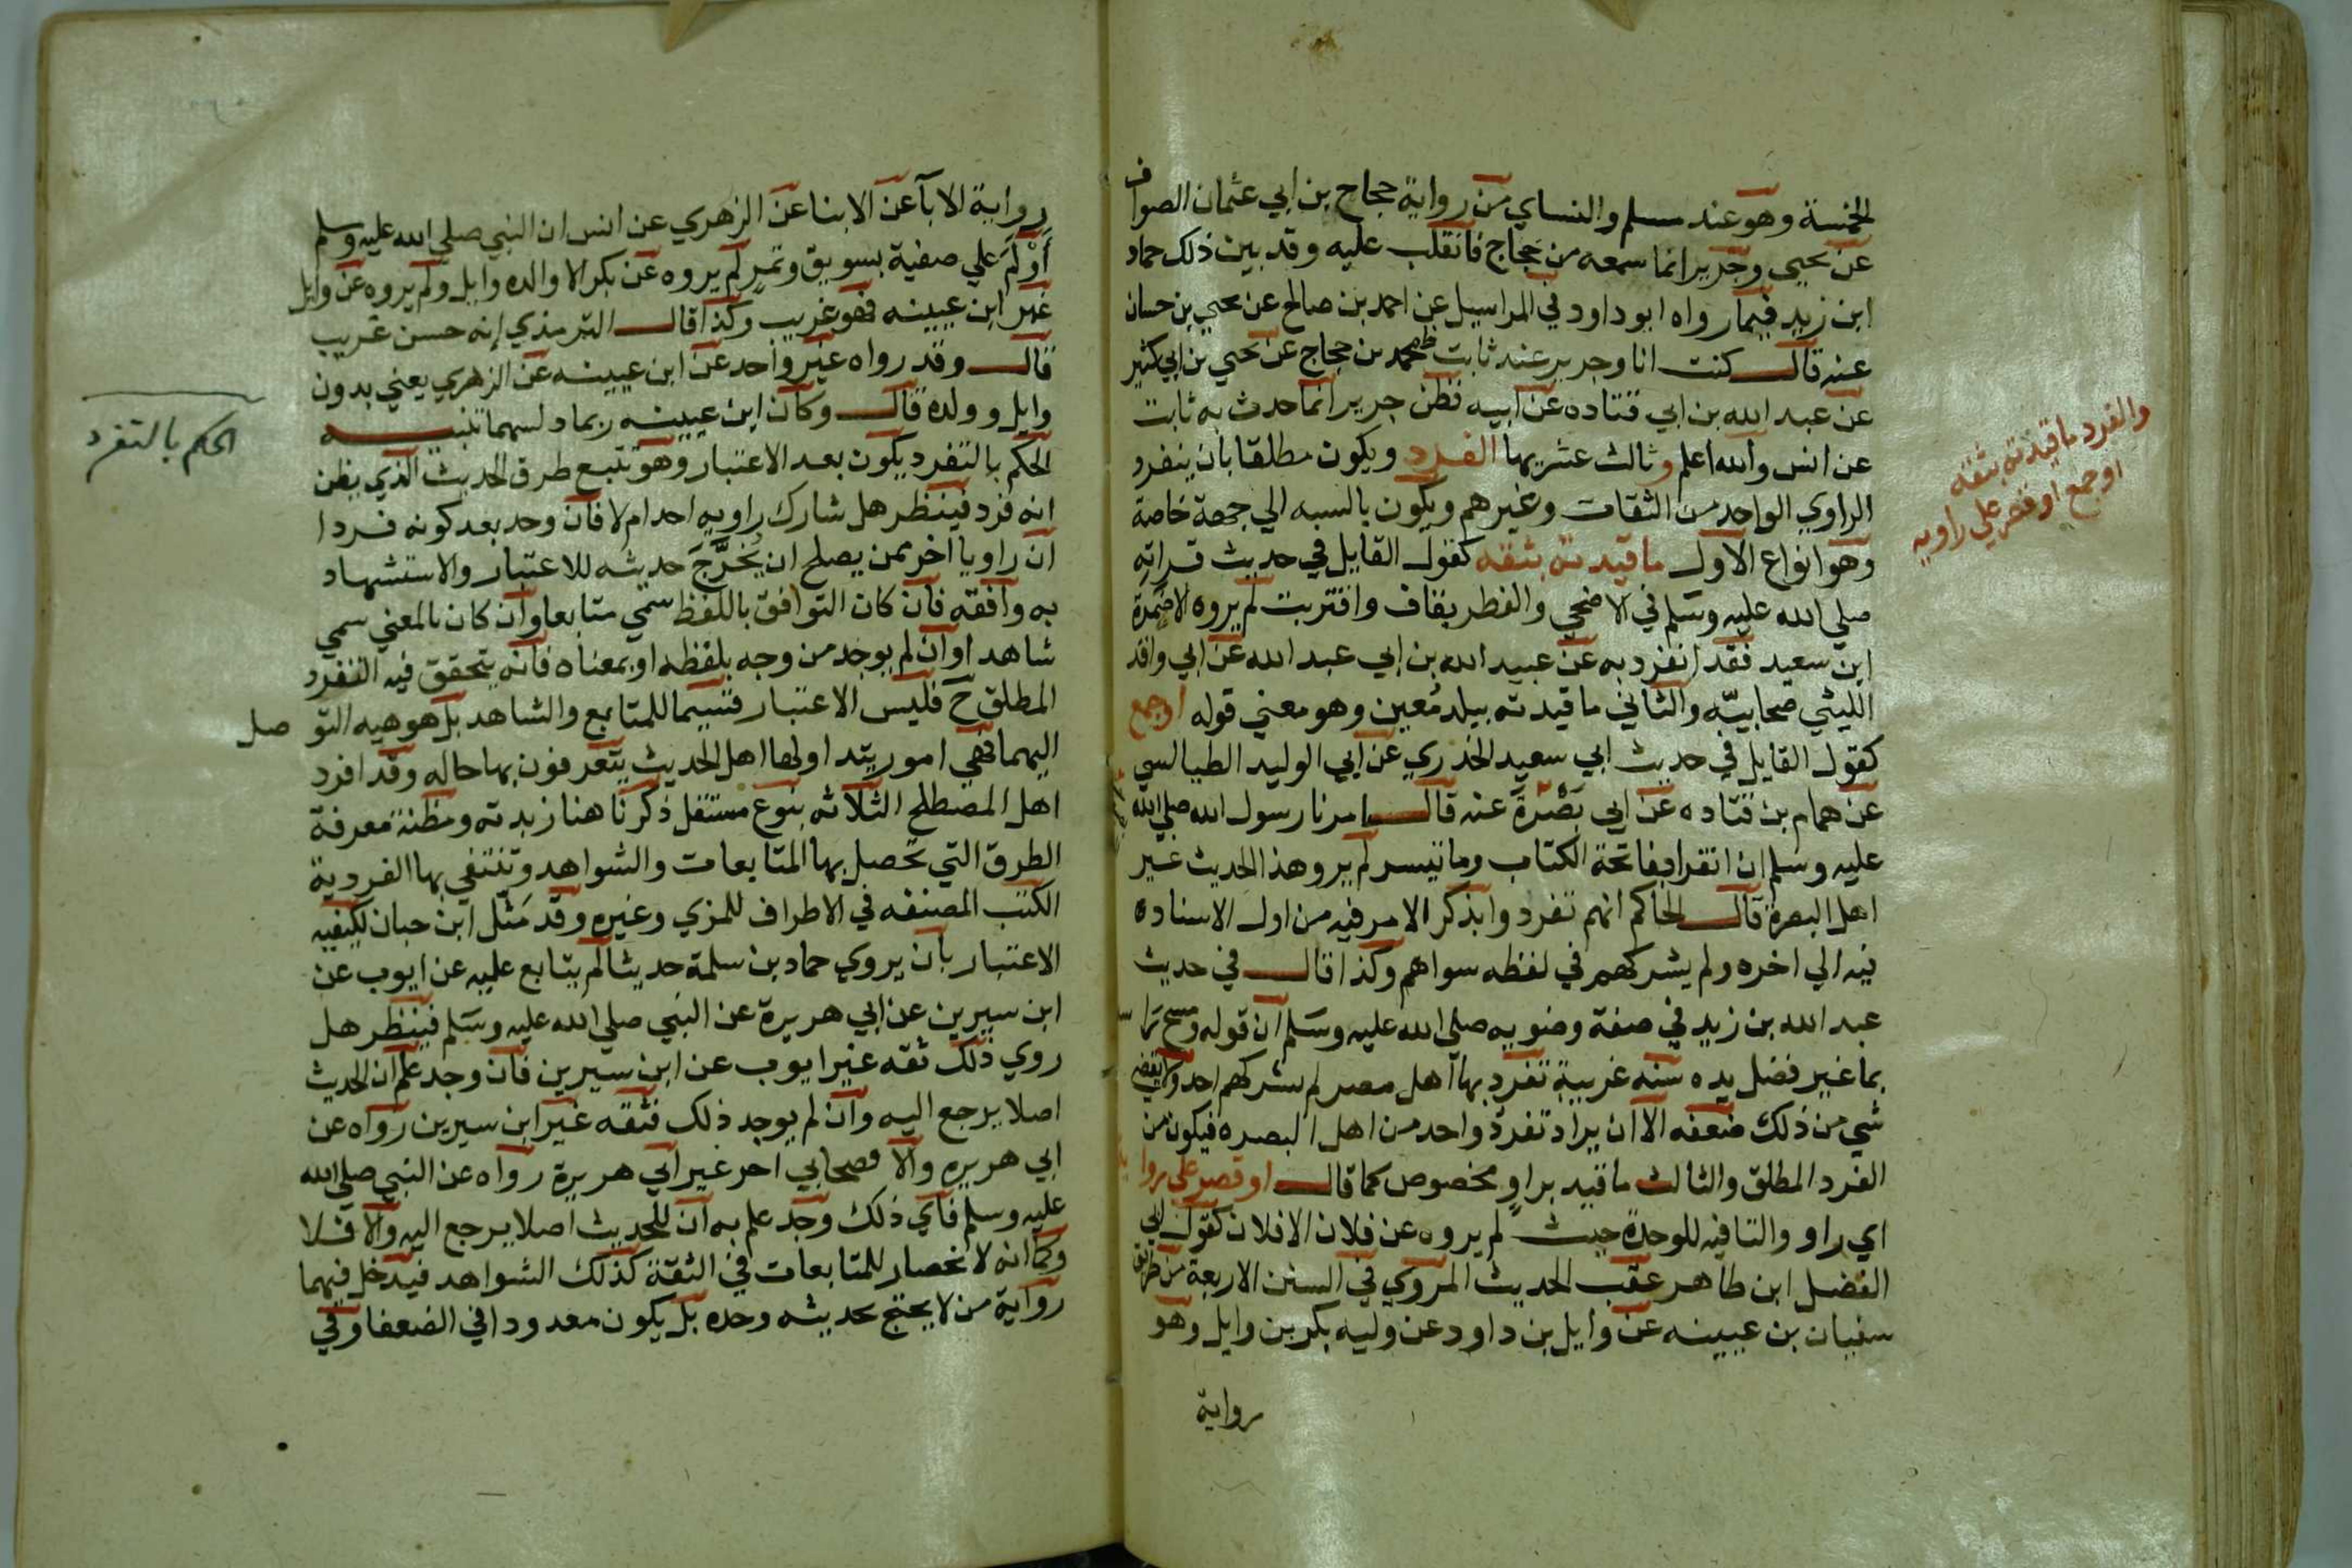 الخمسة وهو عند مسلم والنساي من رواية حجاج بن ابي عثمان الصواف
عن يحيي وجرير انما سمعه من حجاج فانقلب عليه وقد بين ذلك حماد
ابن زيد فيما رواه ابو داود في المراسيل عن احمد بن صالح عن يحيي بن حسان
عنه قال كنت انا وجرير عند ثابت فحدث حجاج عن يحيي بن ابي كثير
عن عبد الله بن ابي قتاده عن ابيه فظن جرير انما حدث به ثابت
عن انس والله اعلم وثالث عشريها الفرد ويكون مطلقا بان ينفرد
الراوي الواحد من الثقات وغيرهم ويكون بالنسبه الي جهة خاصة
وهو انواع الاول ما قيدته بثقه كقول القايل في حديث قراته
صلي الله عليه وسلم في الاضحي والفطر بقاف واقتربت لم يروه الا ضمرة
ابن سعيد فقد انفرد به عن عبيد الله بن ابي عبد الله عن ابي واقد
الليثي صحابيه والثاني ما قيدته ببلد معين وهو معني قوله اوجمع
كقول القايل في حديث ابي سعيد الخدري عن ابي الوليد الطيالسي
عن همام بن قتاده عن ابي نضرة عنه قال امرنا رسول الله صلي الله
عليه وسلم ان نقرا بفاتحة الكتاب وما تيسر لم يرو هذا الحديث غير
اهل البصرة قال الحاكم انهم تفردوا بذكر الامر فيه من اول الاسناد ه
فيه الي اخره ولم يشركهم في لفظه سواهم وكذا قال في حديث
عبد الله بن زيد في صفة وضويه صلي الله عليه وسلم ان قوله ومسح راسه
بما غير فضل يده سنه غريبة تفرد بها اهل مصر لم يشركهم احد ولا يقتضي
شي من ذلك ضعفه الا ان يراد تفرد واحد من اهل البصره فيكون من
الفرد المطلق والثالث ما قيد براو مخصوص كما قال او قصر علي روا
اي راو والتا فيه للوحدة حيث لم يروه عن فلان الا فلان كقول ابي
الفضل ابن طاهر عقب الحديث المروي في السنن الاربعة من طريق
سفيان بن عيينه عن وايل بن داود عن وليه بكر بن وايل وهو
رواية
والفرد ما قيدته بثقه
اوجمع او قصر علي راويه
رواية الابا عن الابنا عن الزهري عن انس ان النبي صلي الله عليه وسلم
اولم علي صفية بسويق وتمر لم يروه عن بكر الا والده وايل ولم يروه عن وايل
غير ابن عيينه فهو غريب وكذا قال الترمذي انه حسن غريب
قال وقد رواه غير واحد عن ابن عيينه عن الزهري يعني بدون
وايل وولده قال وكان ابن عيينه ربما دلسهما تنبيه
الحكم بالتفرد يكون بعد الاعتبار وهو تتبع طرق الحديث الذي يظن
انه فرد فينظر هل شارك راويه احد ام لا فان وحد بعد كونه فردا
ان راويا اخر ممن يصلح ان يخرج حديثه للاعتبار والاستشهاد
به وافقه فان كان التوافق باللفظ سمي متابعا وان كان بالمعني سمي
شاهدا وان لم يوجد من وجه بلفظه او بمعناه فانه يتحقق فيه التفرد
المطلق ح فليس الاعتبار قسيما للمتابع والشاهد بل هو هيه التو صل
اليهما فهي امور يتداولها اهل الحديث يتعرفون بها حاله وقد افرد
اهل المصطلح الثلاثه بنوع مستقل ذكرنا هنا زبدته ومظنة معرفة
الطرق التي تحصل بها المتابعات والشواهد وتنتفي بها الفردية
الكتب المصنفه في الاطراف للمزي وغيره وقد مثل ابن حبان لكيفيه
الاعتبار بان يروي حماد بن سلمة حديثا لم يتابع عليه عن ايوب عن
ابن سيرين عن ابي هريرة عن النبي صلي الله عليه وسلم فينظر هل
روي ذلك ثقه غير ايوب عن ابن سيرين فان وجد علم ان الحديث
اصلا يرجع اليه وان لم يوجد ذلك فثقه غير ابن سيرين رواه عن
ابي هريره والا فصحابي اخر غير ابي هريرة رواه عن النبي صلي الله
عليه وسلم فاي ذلك وجد علم به ان للحديث اصلا يرجع اليه والا فلا
وكما انه لا انحصار للمتابعات في الثقة كذلك الشواهد فيدخل فيهما
رواية من لا يحتج بحديثه وحده بل يكون معدودا في الضعفا وفي
الحكم بالتفرد